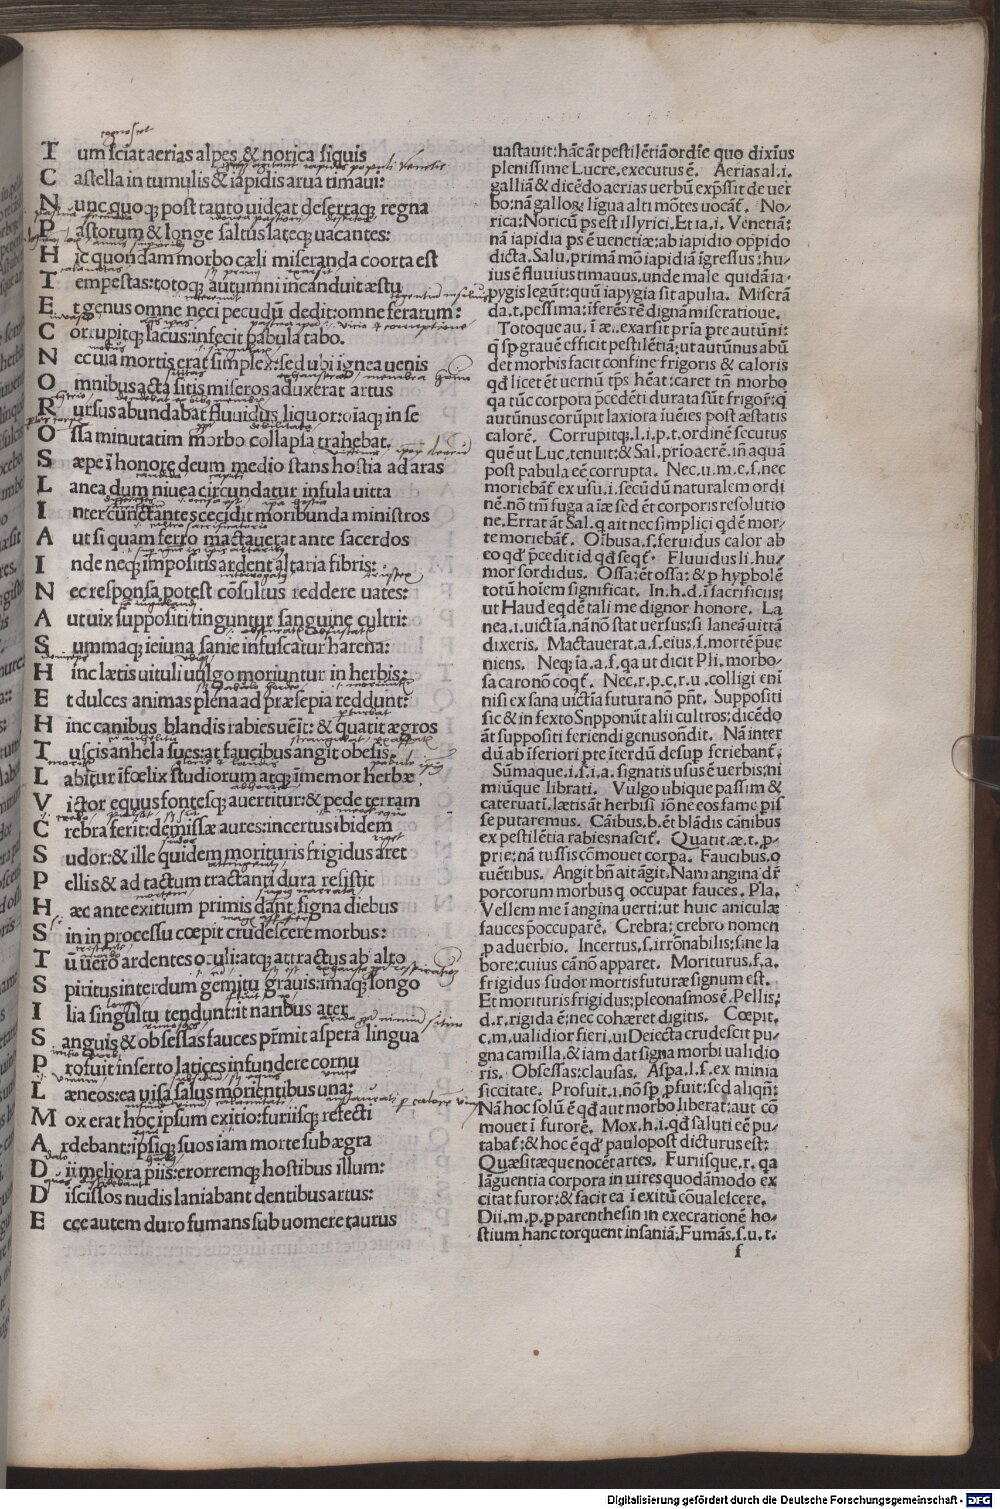 Tum sciat aerias alpes & norica siquis
Castella in tumulis & iapidis arua timaui:
Nunc quoqꝫ post tanto uideat desertaqꝫ regna
Pastorum & longe saltus lateqꝫ uacantes:
Hic quondam morbo cæli miseranda coorta est
Tempestas: totoqꝫ autumni incanduit æstu
Et genus omne neci pecudū dedit: omne ferarum:
Corrupitqꝫ lacus: infecit pabula tabo.
Nec uia mortis erat simplex: sed ubi ignea uenis
Omnibus acta sitis miseros aduxerat artus
Rursus abundabat fluuidus liquor: oīaqꝫ in se
Ossa minutatim morbo collapsa trahebat.
Sæpe ī honore deum medio stans hostia ad aras
Lanea dum niuea circundatur infula uitta
Inter cunctantes cecidit moribunda ministros
Aut si quam ferro mactauerat ante sacerdos
Inde neqꝫ impositis ardent altaria fibris:
Nec responsa potest cōsultus reddere uates:
Aut uix suppositi tinguntur sanguine cultri:
Summaqꝫ ieiuna sanie infuscatur harena:
Hinc lætis uituli uulgo moriuntur in herbis:
Et dulces animas plena ad præsepia reddunt:
Hinc canibus blandis rabies uēit: & quatit ægros
Tuscis anhela sues: at faucibus angit obesis.
Labitur īfœlix studiorum atqꝫ īmemor herbæ
Victor equus fontesqꝫ auertitur: & pede terram
Crebra ferit: demissæ aures: incertus ibidem
Sudor: & ille quidem morituris frigidus aret
Pellis & ad tactum tractanti dura resistit
Hæc ante exitium primis dant signa diebus
Sin in processu cœpit crudescere morbus:
Tū uero ardentes oculi: atqꝫ attractus ab alto
Spiritus interdum gemitu grauis: imaqꝫ longo
Ilia singultu tendunt: it naribus ater
Sanguis & obsessas fauces pr̄mit aspera lingua
Profuit inserto latices infundere cornu
Læneos: ea uisa salus morientibus una:
Mox erat hoc ipsum exitio: furiisqꝫ refecti
Ardebant: ipsiqꝫ suos iam morte sub ægra
Dii meliora piis: erroremqꝫ hostibus illum:
Discissos nudis laniabant dentibus artus:
Ecce autem duro fumans sub uomere taurus
uastauit: hāc āt pestilētiā ordīe quo dixīus
plenissime Lucre. executus ē. Aerias al. i.
galliā & dicēdo aerias uerbū exp̄ssit de uer
bo: nā gallorꝫ ligua alti mōtes uocāt̄. No/
rica: Noricū ps est illyrici. Et ia. i. Venetiā:
nā iapidia ps ē uenetiæ: ab iapidio oppido
dicta. Salu. primā mō iapidiā īgressus: hu/
ius ē fluuius timauus, unde male quidā ia/
pygis legūt: quū iapygia sit apulia. Miserā
da. t. pessima: īferēs rē dignā miseratioue.
Totoque au. ī æ. exarsit pria p̄te autūni:
q̄ sp̄ grauē efficit pestilētiā: ut autūnus abū
det morbis facit confine frigoris & caloris
qd licet ēt uernū tp̄s hēat: caret tn̄ morbo
qa tūc corpora p̄cedēti durata sūt frigor: q̄
autūnus corūpit laxiora iuēies post æstatis
calorē. Corrupitqꝫ. l. i. p. t. ordinē secutus
quē ut Luc. tenuit: & Sal. prio aerē. in̄ aquā
post pabula eē corrupta. Nec. u. m. e. s. nec
moriebāt̄ ex usu. i. secūdū naturalem ordi
nē. nō tm̄ fuga aīæ sed ēt corporis resolutio
ne. Errat āt Sal. q ait nec simplici qdē mor/
te moriebāt̄. Oībus a. s. feruidus calor ab
eo qd p̄cedit id qd seqt̄. Fluuidus li. hu/
mor sordidus. Ossa: ēt ossa: & p hypbolē
totū hoīem significat. In. h. d. ī sacrificiis:
ut Haud eqdē tali me dignor honore. La
nea. i. uictīa. nā nō stat uersus: si laneā uittā
dixeris. Mactauerat. a. s. eius. s. mortē p̄ue
niens. Neqꝫ īa. a. s. qa ut dicit Pli. morbo/
sa caro nō coqt̄. Nec. r. p. c. r. u. colligi enī
nisi ex sana uictīa futura nō pn̄t. Suppositi
sic & in sexto Snpponūt alii cultros: dicēdo
āt suppositi feriendi genus ondit. Nā inter
dū ab īferiori p̄te īterdū desup feriebant̄.
Sūmaque. i. s. i. a. signatis usus ē uerbis: ni
miūque librati. Vulgo ubique passim &
cateruati. lætis āt herbis iō ne eos fame pis
se putaremus. Cāibus. b. ēt blādis cānibus
ex pestilētia rabies nascit̄. Quatit. æ. t. p/
prie: nā tussis cōmouet corpa. Faucibus. o
tuētibus. Angit bn̄ ait āgit. Nam angina dr̄
porcorum morbus q occupat fauces. Pla.
Vellem me ī angina uerti: ut huic aniculæ
fauces p̄occuparē. Crebra: crebro nomen
p aduerbio. Incertus. s. irrōnabilis: sine la
bore: cuius cā nō apparet. Moriturus. s. a.
frigidus sudor mortis futuræ signum est.
Et morituris frigidus: pleonasmos ē. Pellis:
d. r. rigida ē: nec cohæret digitis. Cœpit.
c. m. ualidior fieri. ui Deiecta crudescit pu
gna camilla. & iam dat signa morbi ualidio
ris. Obsessas: clausas. Asp̄a. l. s. ex minia
siccitate. Profuit. i. nō sp̄ pfuit: sed aliqn̄:
Nā hoc solū ē qd aut morbo liberat: aut cō
mouet ī furorē. Mox. h. i. qd saluti eē pu/
tabat̄: & hoc ē qd paulopost dicturus est:
Quæsitæque nocēt artes. Furiisque. r. qa
lāguentia corpora in uires quodāmodo ex
citat furor: & facit ea ī exitū cōualescere.
Dii. m. p. p parenthesin in execrationē ho/
stium hanc torquent insaniā. Fumās. s. u. t.
f
Digitalisierung gefördert durch die Deutsche Forschungsgemeinschaft - DFG